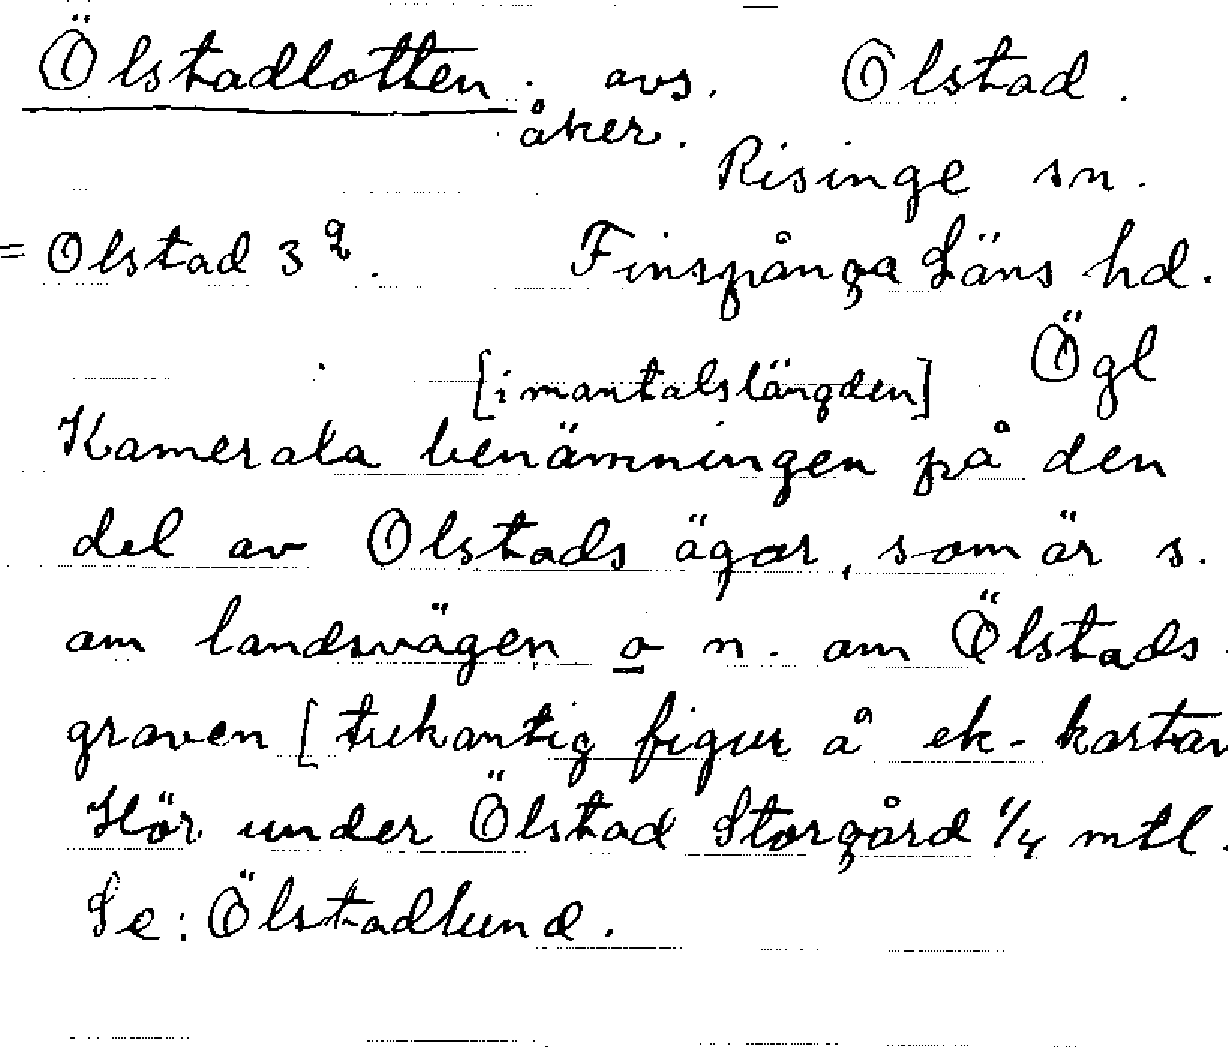 Ölstadlotten. avs. Olstad.
åker.
Risinge sn.
= Olstad 3 q. Finspånga Läns hd.
Ögl
[i mantalslängden]
Kamerala benämningen på den
del av Olstads ägor, som är s.
om landsvägen o n. om Ölstads
graven [trekantig figur å ek-kartan
Hör under Ölstad Storgård 1/4 mtl.
Se: Ölstadlund.